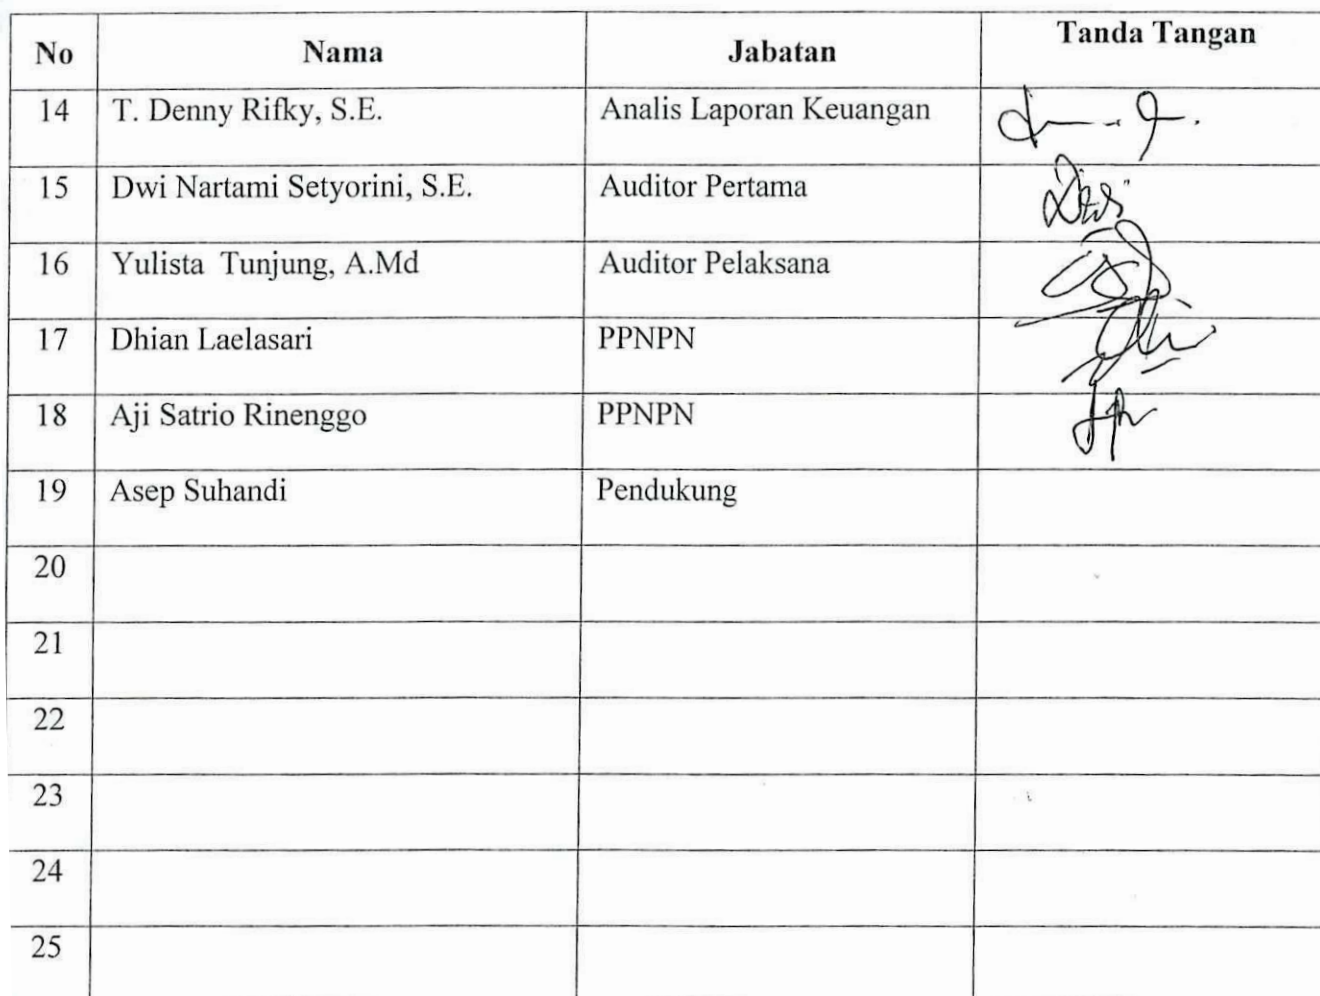 No Nama Jabatan Tanda Tangan
14 T. Denny Rifky, S.E. Analis Laporan Keuangan
15 Dwi Nartami Setyorini, S.E. Auditor Pertama
16 Yulista Tunjung, A.Md Auditor Pelaksana
17 Dhian Laelasari PPNPN
18 Aji Satrio Rinenggo PPNPN
19 Asep Suhandi Pendukung
20
21
22
23
24
25